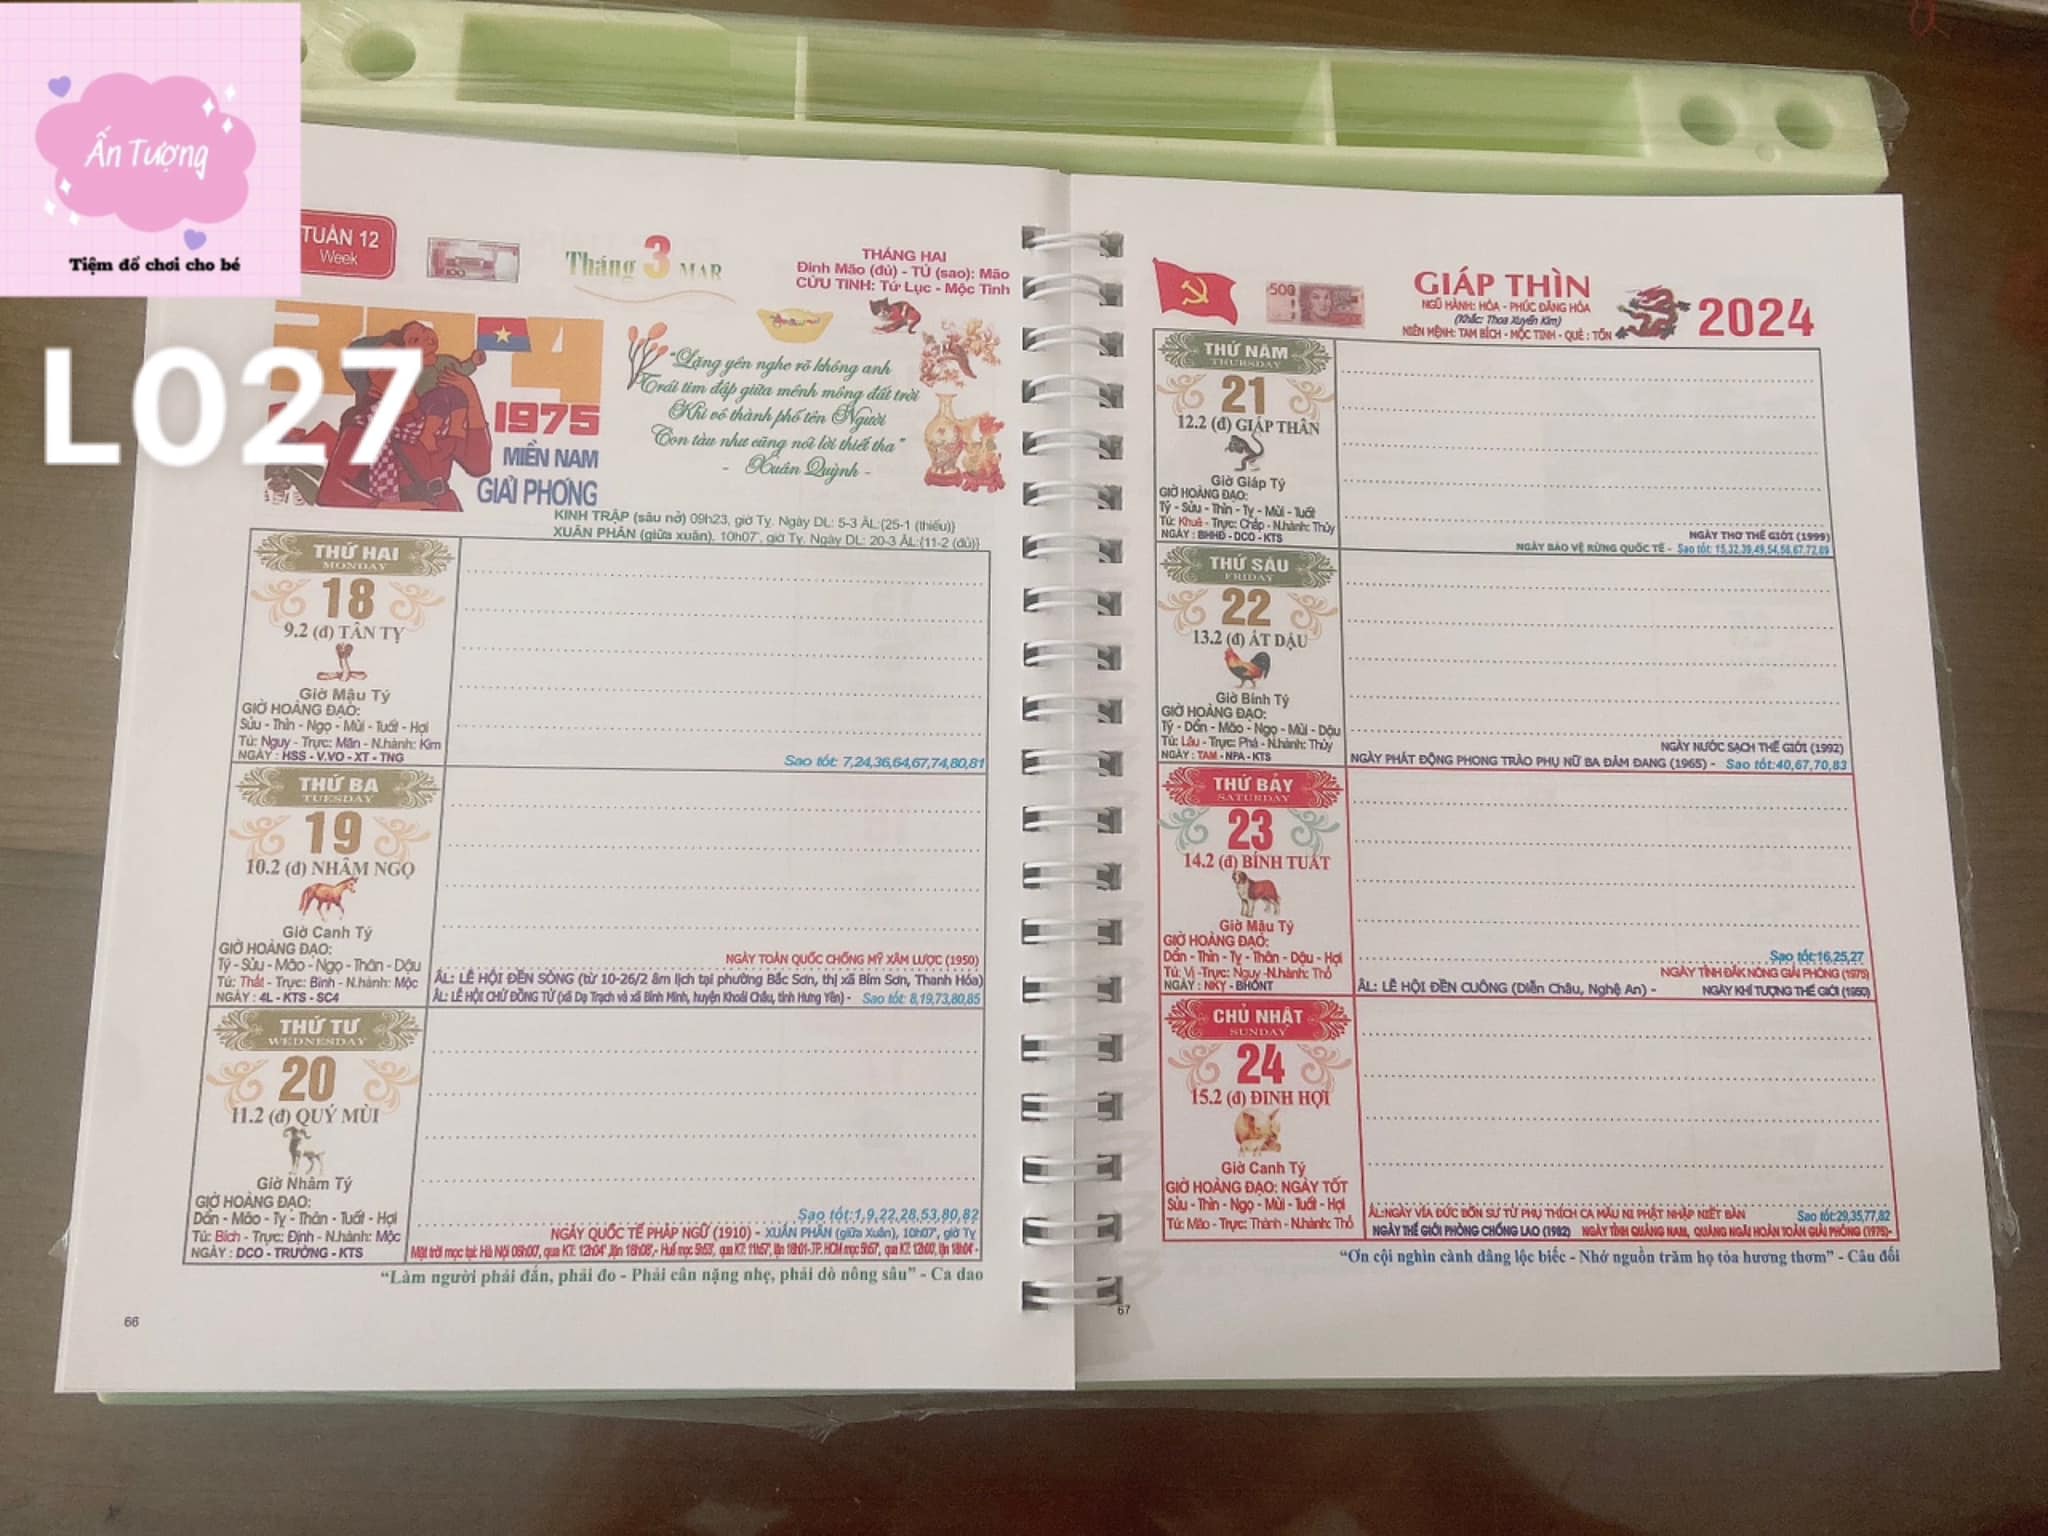 Ấn Tượng
Tiệm đồ chơi cho bé
L027
TUẦN 12
Week
100
Tháng 3 MAR
THÁNG HAI
Đinh Mão (đủ) - TỦ (sao): Mão
CỬU TINH: Tứ Lục - Mộc Tinh
30 4
1975
MIỀN NAM
GIẢI PHÓNG
"Lặng yên nghe rõ không anh
Trái tim đập giữa mênh mông đất trời
Khi về thành phố tên Người
Con tàu như cũng nói lời thiết tha"
- Xuân Quỳnh -
KINH TRẬP (sâu nở) 09h23, giờ Tỵ. Ngày DL: 5-3 ÂL:{25-1 (thiếu)}
XUÂN PHÂN (giữa xuân), 10h07', giờ Tỵ. Ngày DL: 20-3 ÂL:{11-2 (đủ)}
THỨ HAI
MONDAY
18
9.2 (đ) TÂN TỴ
Giờ Mậu Tý
GIỜ HOÀNG ĐẠO:
Sửu - Thìn - Ngọ - Mùi - Tuất - Hợi
Tú: Nguy - Trực: Mãn - N.hành: Kim
NGÀY : HSS - V.VO - XT - TNG
Sao tốt: 7,24,36,64,67,74,80,81
THỨ BA
TUESDAY
19
10.2 (đ) NHÂM NGỌ
Giờ Canh Tý
GIỜ HOÀNG ĐẠO:
Tý - Sửu - Mão - Ngọ - Thân - Dậu
Tú: Thất - Trực: Bình - N.hành: Mộc
NGÀY : 4L - KTS - SC4
NGÀY TOÀN QUỐC CHỐNG MỸ XÂM LƯỢC (1950)
ÂL: LỄ HỘI ĐỀN SÒNG (từ 10-26/2 âm lịch tại phường Bắc Sơn, thị xã Bỉm Sơn, Thanh Hóa)
ÂL: LỄ HỘI CHỬ ĐỒNG TỬ (xã Dạ Trạch và xã Bình Minh, huyện Khoái Châu, tỉnh Hưng Yên) - Sao tốt: 8,19,73,80,85
THỨ TƯ
WEDNESDAY
20
11.2 (đ) QUÝ MÙI
Giờ Nhâm Tý
GIỜ HOÀNG ĐẠO:
Dần - Mão - Tỵ - Thân - Tuất - Hợi
Tú: Bích - Trực: Định - N.hành: Mộc
NGÀY : DCO - TRƯỜNG - KTS
Sao tốt:1,9,22,28,53,80,82
NGÀY QUỐC TẾ PHÁP NGỮ (1910) - XUÂN PHÂN (giữa Xuân), 10h07', giờ Tỵ
Mặt trời mọc tại: Hà Nội 06h00', qua KT: 12h04' ,lặn 18h08',- Huế mọc 5h53', qua KT: 11h57', lặn 18h01-.TP. HCM mọc 5h57', qua KT: 12h00', lặn 18h04' -
"Làm người phải đắn, phải đo - Phải cân nặng nhẹ, phải dò nông sâu" - Ca dao
66
500
GIÁP THÌN
NGŨ HÀNH: HỎA - PHÚC ĐĂNG HỎA
(Khắc: Thoa Xuyến Kim)
NIÊN MỆNH: TAM BÍCH - MỘC TINH - QUẺ : TỐN
2024
THỨ NĂM
THURSDAY
21
12.2 (đ) GIÁP THÂN
Giờ Giáp Tý
GIỜ HOÀNG ĐẠO:
Tý - Sửu - Thìn - Tỵ - Mùi - Tuất
Tú: Khuê - Trực: Chấp - N.hành: Thủy
NGÀY : BHHĐ - DCO - KTS
NGÀY THƠ THẾ GIỚI (1999)
NGÀY BẢO VỆ RỪNG QUỐC TẾ - Sao tốt: 15,32,39,49,54,56,67,72,89
THỨ SÁU
FRIDAY
22
13.2 (đ) ẤT DẬU
Giờ Bính Tý
GIỜ HOÀNG ĐẠO:
Tý - Dần - Mão - Ngọ - Mùi - Dậu
Tú: Lâu - Trực: Phá - N.hành: Thủy
NGÀY : TAM - NPA - KTS
NGÀY NƯỚC SẠCH THẾ GIỚI (1992)
NGÀY PHÁT ĐỘNG PHONG TRÀO PHỤ NỮ BA ĐẢM ĐANG (1965) - Sao tốt:40,67,70,83
THỨ BẢY
SATURDAY
23
14.2 (đ) BÍNH TUẤT
Giờ Mậu Tý
GIỜ HOÀNG ĐẠO:
Dần - Thìn - Tỵ - Thân - Dậu - Hợi
Tú: Vị -Trực: Nguy -N.hành: Thổ
NGÀY : NKY - BHÓNT
Sao tốt:16,25,27
NGÀY TỈNH ĐẮK NÔNG GIẢI PHÓNG (1975)
ÂL: LỄ HỘI ĐỀN CUÔNG (Diễn Châu, Nghệ An) - NGÀY KHÍ TƯỢNG THẾ GIỚI (1950)
CHỦ NHẬT
SUNDAY
24
15.2 (đ) ĐINH HỢI
Giờ Canh Tý
GIỜ HOÀNG ĐẠO: NGÀY TỐT
Sửu - Thìn - Ngọ - Mùi - Tuất - Hợi
Tú: Mão - Trực: Thành - N.hành: Thổ
ÂL:NGÀY VÍA ĐỨC BỔN SƯ TỪ PHỤ THÍCH CA MÂU NI PHẬT NHẬP NIẾT BÀN Sao tốt:29,35,77,82
NGÀY THẾ GIỚI PHÒNG CHỐNG LAO (1982) NGÀY TỈNH QUẢNG NAM, QUẢNG NGÃI HOÀN TOÀN GIẢI PHÓNG (1975)-
"Ơn cội nghìn cành dâng lộc biếc - Nhớ nguồn trăm họ tỏa hương thơm" - Câu đối
67